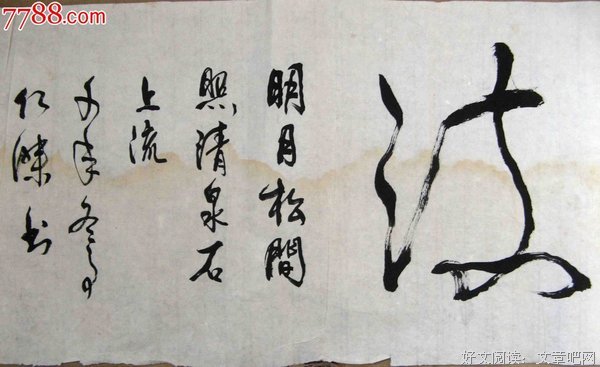 7788.com
明月松間
照清泉石
上流
年冬
仁傑书
好文阅读：文章吧网